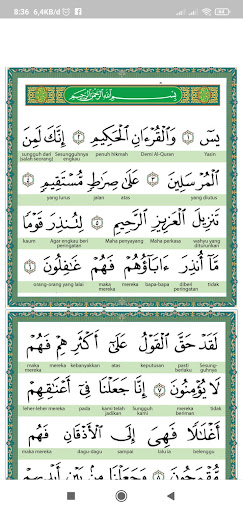 8:36 6,4KB/d
بِسْمِ اللَّهِ الرَّحْمَٰنِ الرَّحِيمِ
يسٓ ١ وَالْقُرْءَانِ الْحَكِيمِ ٢ إِنَّكَ لَمِنَ
sungguh dari Sesungguhnya penuh hikmah Demi Al-Quran Yasin
(salah seorang) engkau
الْمُرْسَلِينَ ٣ عَلَىٰ صِرَاطٍ مُّسْتَقِيمٍ ٤
yang lurus jalan atas yang diutus
تَنزِيلَ الْعَزِيزِ الرَّحِيمِ ٥ لِتُنذِرَ قَوْمًا
kaum Agar engkau beri Maha penyayang Maha perkasa wahyu yang
peringatan diturunkan
مَّا أُنذِرَ ءَابَاؤُهُمْ فَهُمْ غَافِلُونَ ٦
orang-orang yang lalai maka mereka bapa-bapa diberi tidak
mereka peringatan
لَقَدْ حَقَّ الْقَوْلُ عَلَىٰ أَكْثَرِهِمْ فَهُمْ
maka kebanyakkan atas keputusan pasti Sesung-
mereka mereka guhnya
لَا يُؤْمِنُونَ ٧ إِنَّا جَعَلْنَا فِي أَعْنَاقِهِمْ
leher-leher mereka pada kami telah Sungguh mereka tidak
jadikan kami beriman
أَغْلَالًا فَهِيَ إِلَى الْأَذْقَانِ فَهُم
maka mereka dagu-dagu sampai lalu ia belenggu
مُّقْمَحُونَ ٨ وَجَعَلْنَا مِن بَيْنِ أَيْدِيهِمْ